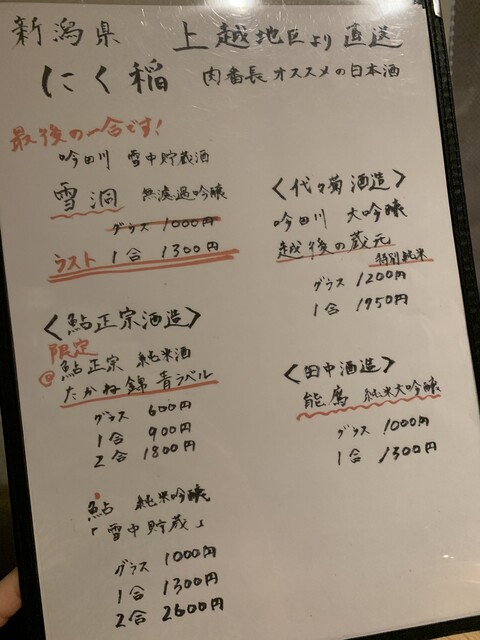 新潟県 上越地区より直送
にく稲 肉番長オススメの日本酒
最後の一合です!
吟田川 雪中貯蔵酒
雪洞 無濾過吟醸
グラス 1000円
ラスト 1合 1300円
<鮎正宗酒造>
限定
鮎正宗 純米酒
たかね錦 青ラベル
グラス 600円
1合 900円
2合 1800円
鮎 純米吟醸
「雪中貯蔵」
グラス 1000円
1合 1300円
2合 2600円
<代々菊酒造>
吟田川 大吟醸
越後の蔵元
特別純米
グラス 1200円
1合 1950円
<田中酒造>
能鷹 純米大吟醸
グラス 1000円
1合 1300円